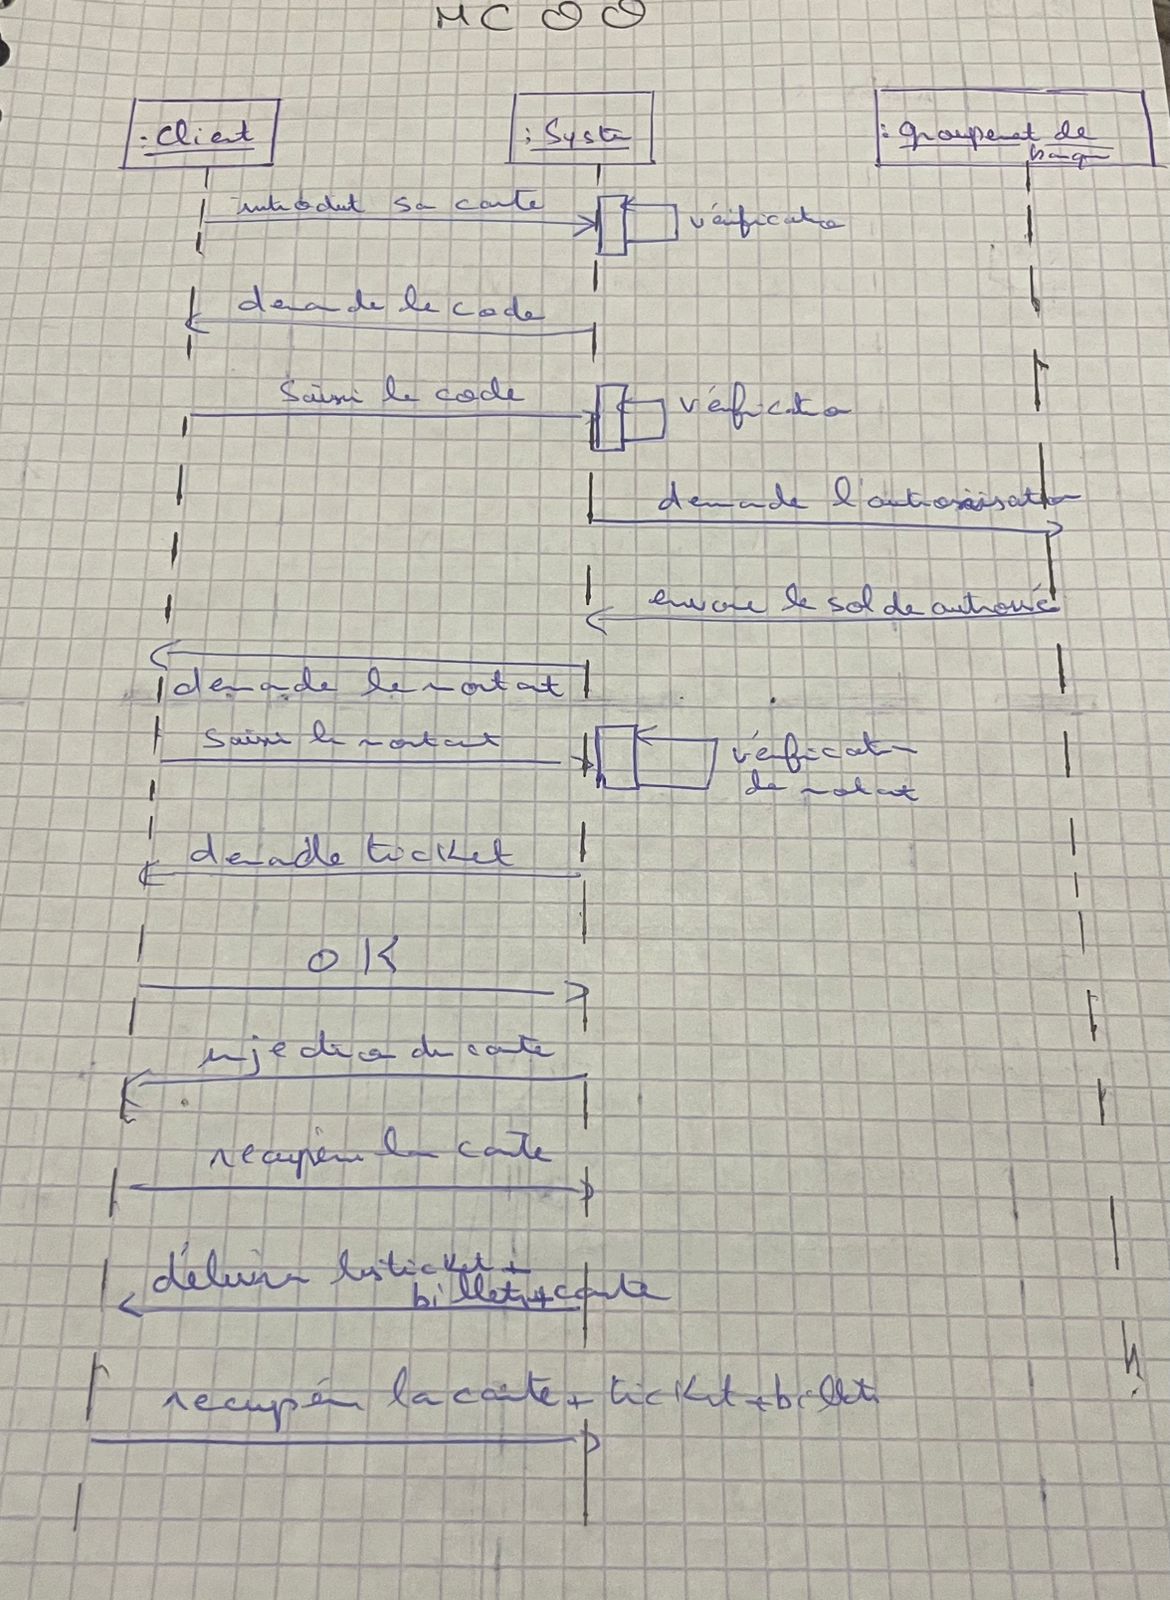 MCOO
:Client
:Syste
:groupement de
banque
introduit sa carte
vérification
demande le code
Saisi le code
vérification
demande l'autorisation
envoie le solde autorisé
demande le montant
Saisi le montant
vérification
de montant
demande ticket
OK
injection de carte
recupére la carte
délivre les ticket +
billets + carte
recupére la carte + ticket + billets